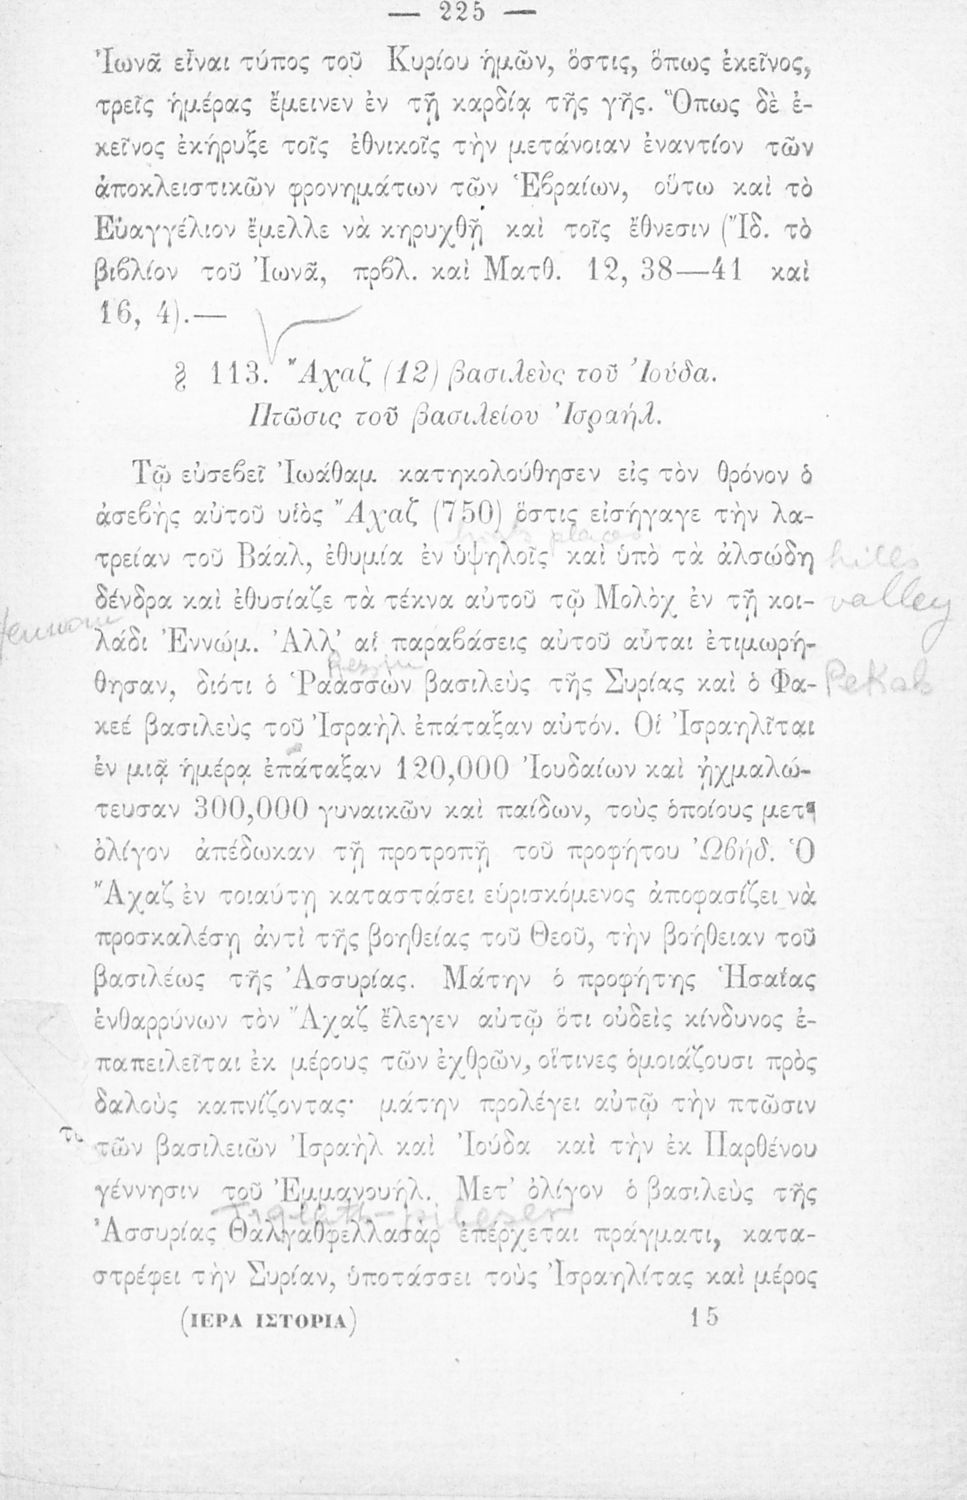 — 225 —
Ἰωνᾶ εἶναι τύπος τοῦ Κυρίου ἡμῶν, ὅστις, ὅπως ἐκεῖνος,
τρεῖς ἡμέρας ἔμεινεν ἐν τῇ καρδίᾳ τῆς γῆς. Ὅπως δὲ ἐ-
κεῖνος ἐκήρυξε τοῖς ἐθνικοῖς τὴν μετάνοιαν ἐναντίον τῶν
ἀποκλειστικῶν φρονημάτων τῶν Ἑβραίων, οὕτω καὶ τὸ
Εὐαγγέλιον ἔμελλε νὰ κηρυχθῇ καὶ τοῖς ἔθνεσιν (Ἴδ. τὸ
βιβλίον τοῦ Ἰωνᾶ, πρβλ. καὶ Ματθ. 12, 38—41 καὶ
16, 4).—
§ 113. Ἄχαζ (12) βασιλεὺς τοῦ Ἰούδα.
Πτῶσις τοῦ βασιλείου Ἰσραήλ.
Τῷ εὐσεβεῖ Ἰωάθαμ κατηκολούθησεν εἰς τὸν θρόνον ὁ
ἀσεβὴς αὐτοῦ υἱὸς Ἄχαζ (750) ὅστις εἰσήγαγε τὴν λα-
high places
τρείαν τοῦ Βάαλ, ἐθυμία ἐν ὑψηλοῖς καὶ ὑπὸ τὰ ἀλσώδη hills
δένδρα καὶ ἐθυσίαζε τὰ τέκνα αὐτοῦ τῷ Μολὸχ ἐν τῇ κοι- valley
λάδι Ἐννώμ. Ἀλλ’ αἱ παραβάσεις αὐτοῦ αὗται ἐτιμωρή-
Rezin
θησαν, διότι ὁ Ῥαασσὼν βασιλεὺς τῆς Συρίας καὶ ὁ Φα- Pekah
κεέ βασιλεὺς τοῦ Ἰσραὴλ ἐπάταξαν αὐτόν. Οἱ Ἰσραηλῖται
ἐν μιᾷ ἡμέρᾳ ἐπάταξαν 120,000 Ἰουδαίων καὶ ᾐχμαλώ-
τευσαν 300,000 γυναικῶν καὶ παίδων, τοὺς ὁποίους μετ’
ὀλίγον ἀπέδωκαν τῇ προτροπῇ τοῦ προφήτου Ὠβήδ. Ὁ
Ἄχαζ ἐν τοιαύτῃ καταστάσει εὑρισκόμενος ἀποφασίζει νὰ
προσκαλέσῃ ἀντὶ τῆς βοηθείας τοῦ Θεοῦ, τὴν βοήθειαν τοῦ
βασιλέως τῆς Ἀσσυρίας. Μάτην ὁ προφήτης Ἡσαΐας
ἐνθαρρύνων τὸν Ἄχαζ ἔλεγεν αὐτῷ ὅτι οὐδεὶς κίνδυνος ἐ-
παπειλεῖται ἐκ μέρους τῶν ἐχθρῶν, οἵτινες ὁμοιάζουσι πρὸς
δαλοὺς καπνίζοντας· μάτην προλέγει αὐτῷ τὴν πτῶσιν
τῶν βασιλειῶν Ἰσραὴλ καὶ Ἰούδα καὶ τὴν ἐκ Παρθένου
γέννησιν τοῦ Ἐμμανουήλ. Μετ’ ὀλίγον ὁ βασιλεὺς τῆς
Tiglath-pileser
Ἀσσυρίας Θαλγαθφελλασὰρ ἐπέρχεται πράγματι, κατα-
στρέφει τὴν Συρίαν, ὑποτάσσει τοὺς Ἰσραηλίτας καὶ μέρος
(ΙΕΡΑ ΙΣΤΟΡΙΑ) 15